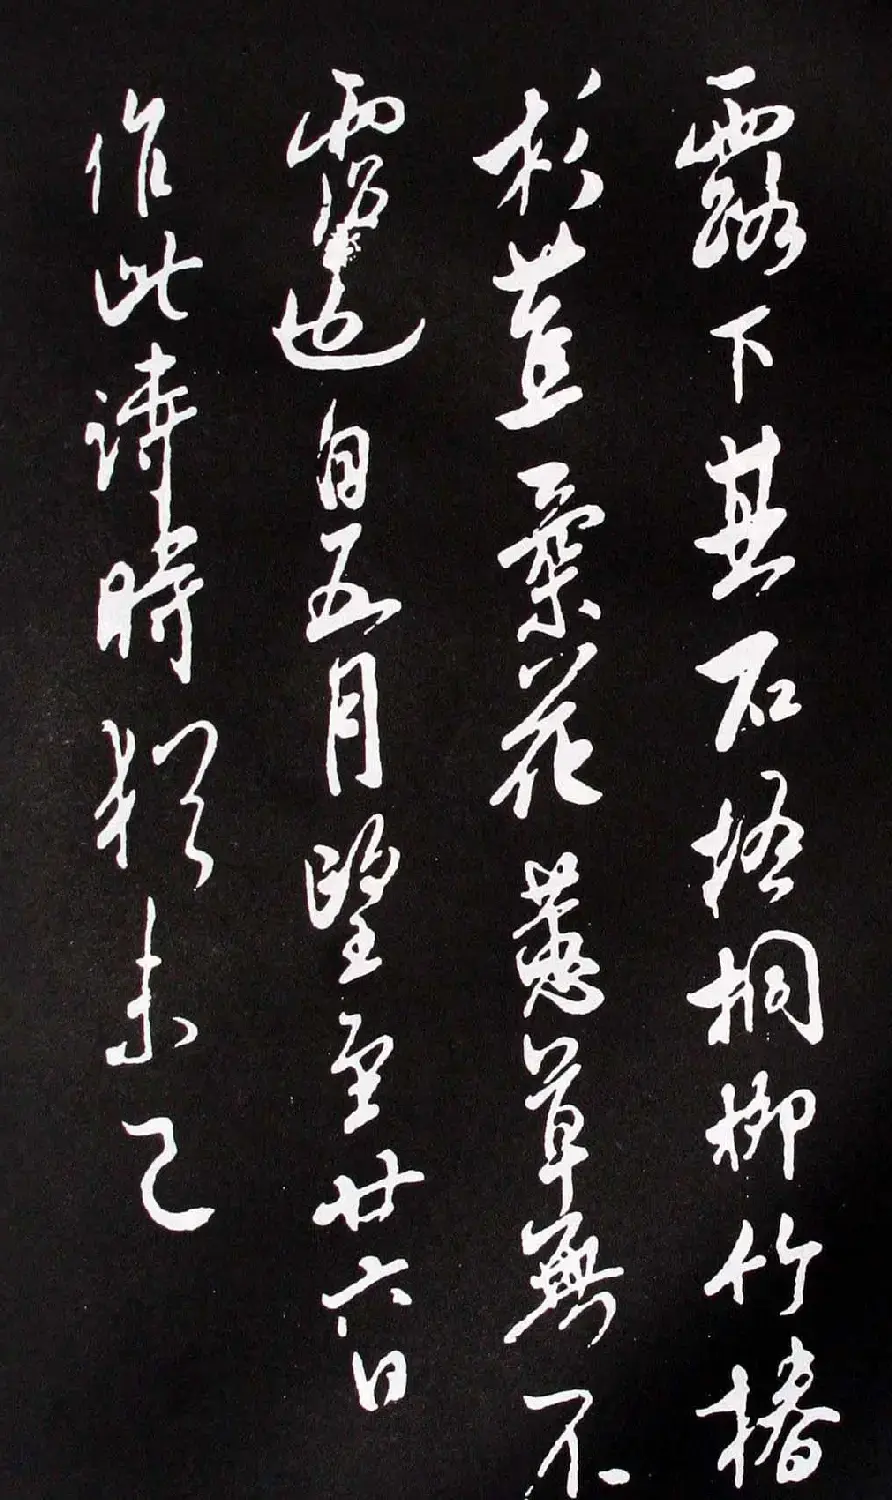 露下其石梧桐柳竹椿
杉花蕙草無不
霑也自五月望至廿六日
作此詩時猶未已